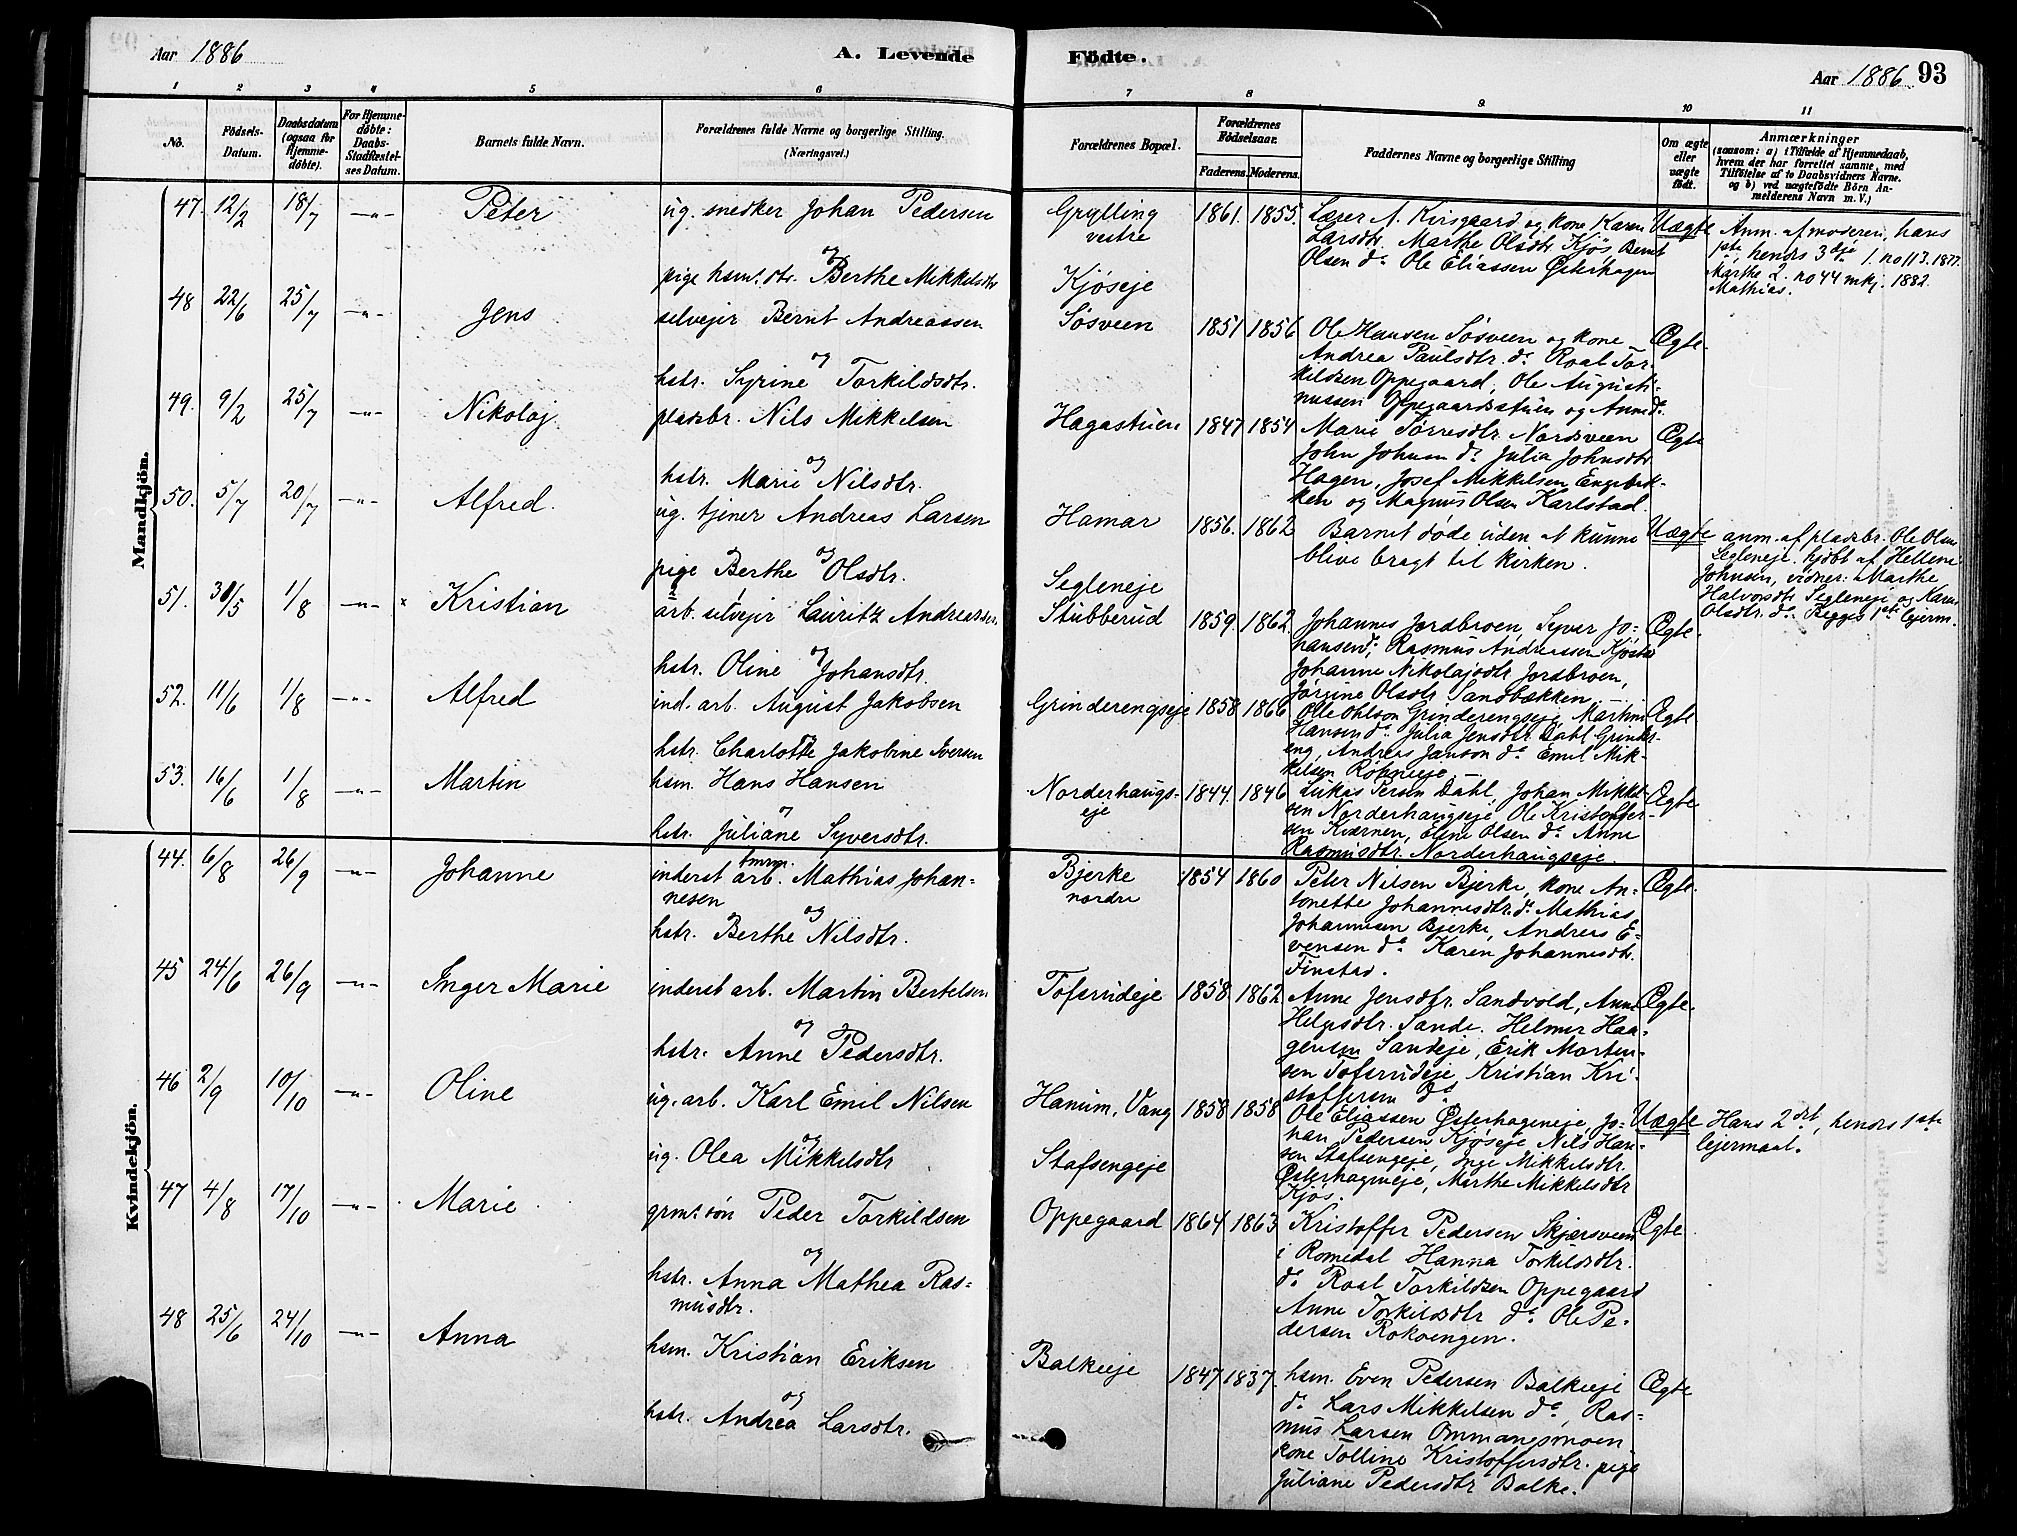 Aar 1886
A. Levende
Födte.
Aar 1886
93
1 2 3 4 5 6 7 8 9 10 11
No.
Födsels-
Datum.
Daabsdatum
(ogsaa for
Hjemme-
döbte).
For Hjemme-
döbte:
Daabs-
Stadfæstel-
ses Datum.
Barnets fulde Navn.
Forældrenes fulde Navne og borgerlige Stilling.
(Næringsvei.)
Forældrenes Bopæl.
Forældrenes
Födselsaar.
Faderens. Moderens.
Faddernes Navne og borgerlige Stilling
Om ægte
eller
uægte
födt.
Anmærkninger
(saasom: a) i Tilfælde af Hjemmedaab,
hvem der har forrettet samme, med
Tilföielse af to Daabsvidners Navne.
og b) ved uægtefödte Börn An-
melderens Navn m. V.)
Mandkjön.
47. 12/2 18/7 -"- Peter
ug. snedker Johan Pedersen
og
pige hsmt. dtr. Berthe Mikkelsdtr
Grylling
vestre
Kjöseje
1861. 1855.
Lærer A. Kirsgaard og kone Karen
Larsdtr. Marthe Olsdtr Kjös Bernt
Olsen do Ole Eliassen Østerhagen
Uægte
Anm. af moderen, hans
1ste, hendes 3die 1. no 113. 1877.
Marthe 2. no 44 mkj. 1882.
Mathias.
48 22/6 25/7 -"- Jens
selvejer Bernt Andreassen
og
hstr. Syrine Torkildsdtr.
Søsveen
1851 1856
Ole Hansen Søsveen og kone
Andrea Paulsdtr. do Roal Tor-
kildsen Oppegaard, Ole Augusti-
nussen Oppegaardsstuen og Anne do
Ægte.
49. 9/2 25/7 -"- Nikolaj
pladsbr. Nils Mikkelsen
og
hstr. Marie Nilsdtr.
Hagastuen
1847 1854
Marie Törresdtr. Nordsveen
John Johnsen do Julia Johnsdtr.
Hagen, Josef Mikkelsen Engebak-
ken og Magnus Olsen Karlstad.
Ægte
50. 5/7 20/7 -"- Alfred.
ug. tjener Andreas Larsen
og
pige Berthe Olsdtr.
Hamar
Segleneje
1856. 1862
Barnet døde uden at kunne
blive bragt til kirken.
Uægte
anm. af pladsbr. Ole Olsen
Segleneje. hjdbt af Hellene
Johnsen, vidner: Marthe
Halvorsdtr Segleneje og Karen
Olsdtr. do. Begges 1ste lejerm.
51. 30/5 1/8 -"- × Kristian
arb. selvejer Lauritz Andreassen.
og
hstr. Oline Johansdtr.
Stubberud
1859. 1862
Johannes Jordbroen, Syver Jo-
hansen do, Rasmus Andreassen
Johanne Nikolajsdtr Jordbroen,
Jörgine Olsdtr Sandbakken
Ægte.
52. 11/6 1/8 -"- Alfred
ind. arb. August Jakobsen
og
hstr. Charlotte Jakobine Iversen
Grinderengseje
1858 1866
Olle Ohlson Grinderengseje, Martin
Hansen do Julia Jensdtr. Dahl Grinder-
eng, Andreas Janson do Emil Mik-
kelsen
Ægte
53. 16/6 1/8 -"- Martin
hsm. Hans Hansen
og
hstr. Juliane Syversdtr.
Norderhaugs-
eje
1844. 1846
Lukas Persen Dahl, Johan Mikkel-
sen Norderhaugseje, Ole Kristoffer-
sen Kværnen, Eline Olsen do Anne
Rasmusdtr. Norderhaugseje.
Ægte
Kvindekjön.
44. 6/8 26/9 -"- Johanne
inderst tmrm. arb. Mathias Johan-
nesen
og
hstr. Berthe Nilsdtr.
Bjerke
nordre
1854 1860
Peter Nilsen Bjerke, kone An-
tonette Johannesdtr. do Mathias
Johannesen Bjerke, Andreas E-
vensen do Karen Johannesdtr.
Finstad.
Ægte.
45 24/6 26/9 -"- Inger Marie
inderst arb. Martin Bertelsen
og
hstr. Anne Pedersdtr.
Tofsrudeje
1858 1862
Anne Jensdtr. Sandvold, Anne
Helgesdtr. Sande. Helmer Haa-
gensen Sandeje, Erik Morten-
sen Tofsrudeje, Kristian Kri-
stoffersen do
Ægte.
46 2/9 10/10 -"- Oline
ug. arb. Karl Emil Nilsen
og
ug. Olea Mikkelsdtr
Hanum, Vang
Stafsengeje
1858 1858
Ole Eliassen Østerhageneje, Jo-
han Pedersen Kjøseje Nils Han-
sen Stafsengeje, Inge Mikkelsdtr.
Østerhageneje, Marthe Mikkelsdtr
Kjös.
Uægte
Hans 2det, hendes 1ste
lejermaal.
47 4/8 17/10 -"- Marie
grmt. søn Peder Torkildsen
og
hstr. Anna Mathea Ras-
musdtr.
Oppegaard
1864 1863
Kristoffer Pedersen Skjærsveen
i Romedal Hanna Torkildsdtr.
do Roal Torkildsen Oppegaard
Anne Torkildsdtr do Ole Pe-
dersen Rokoengen.
Ægte
48 25/6 24/10 -"- Anna
hsm. Kristian Eriksen
og
hstr. Andrea Larsdtr.
Balkeeje
1847 1837.
hsm. Even Pedersen Balkeeje
do Lars Mikkelsen do, Ras-
mus Larsen Ommangsmoen
kone Tolline Kristoffersdtr. pige
Juliane Pedersdtr Balke.
Ægte